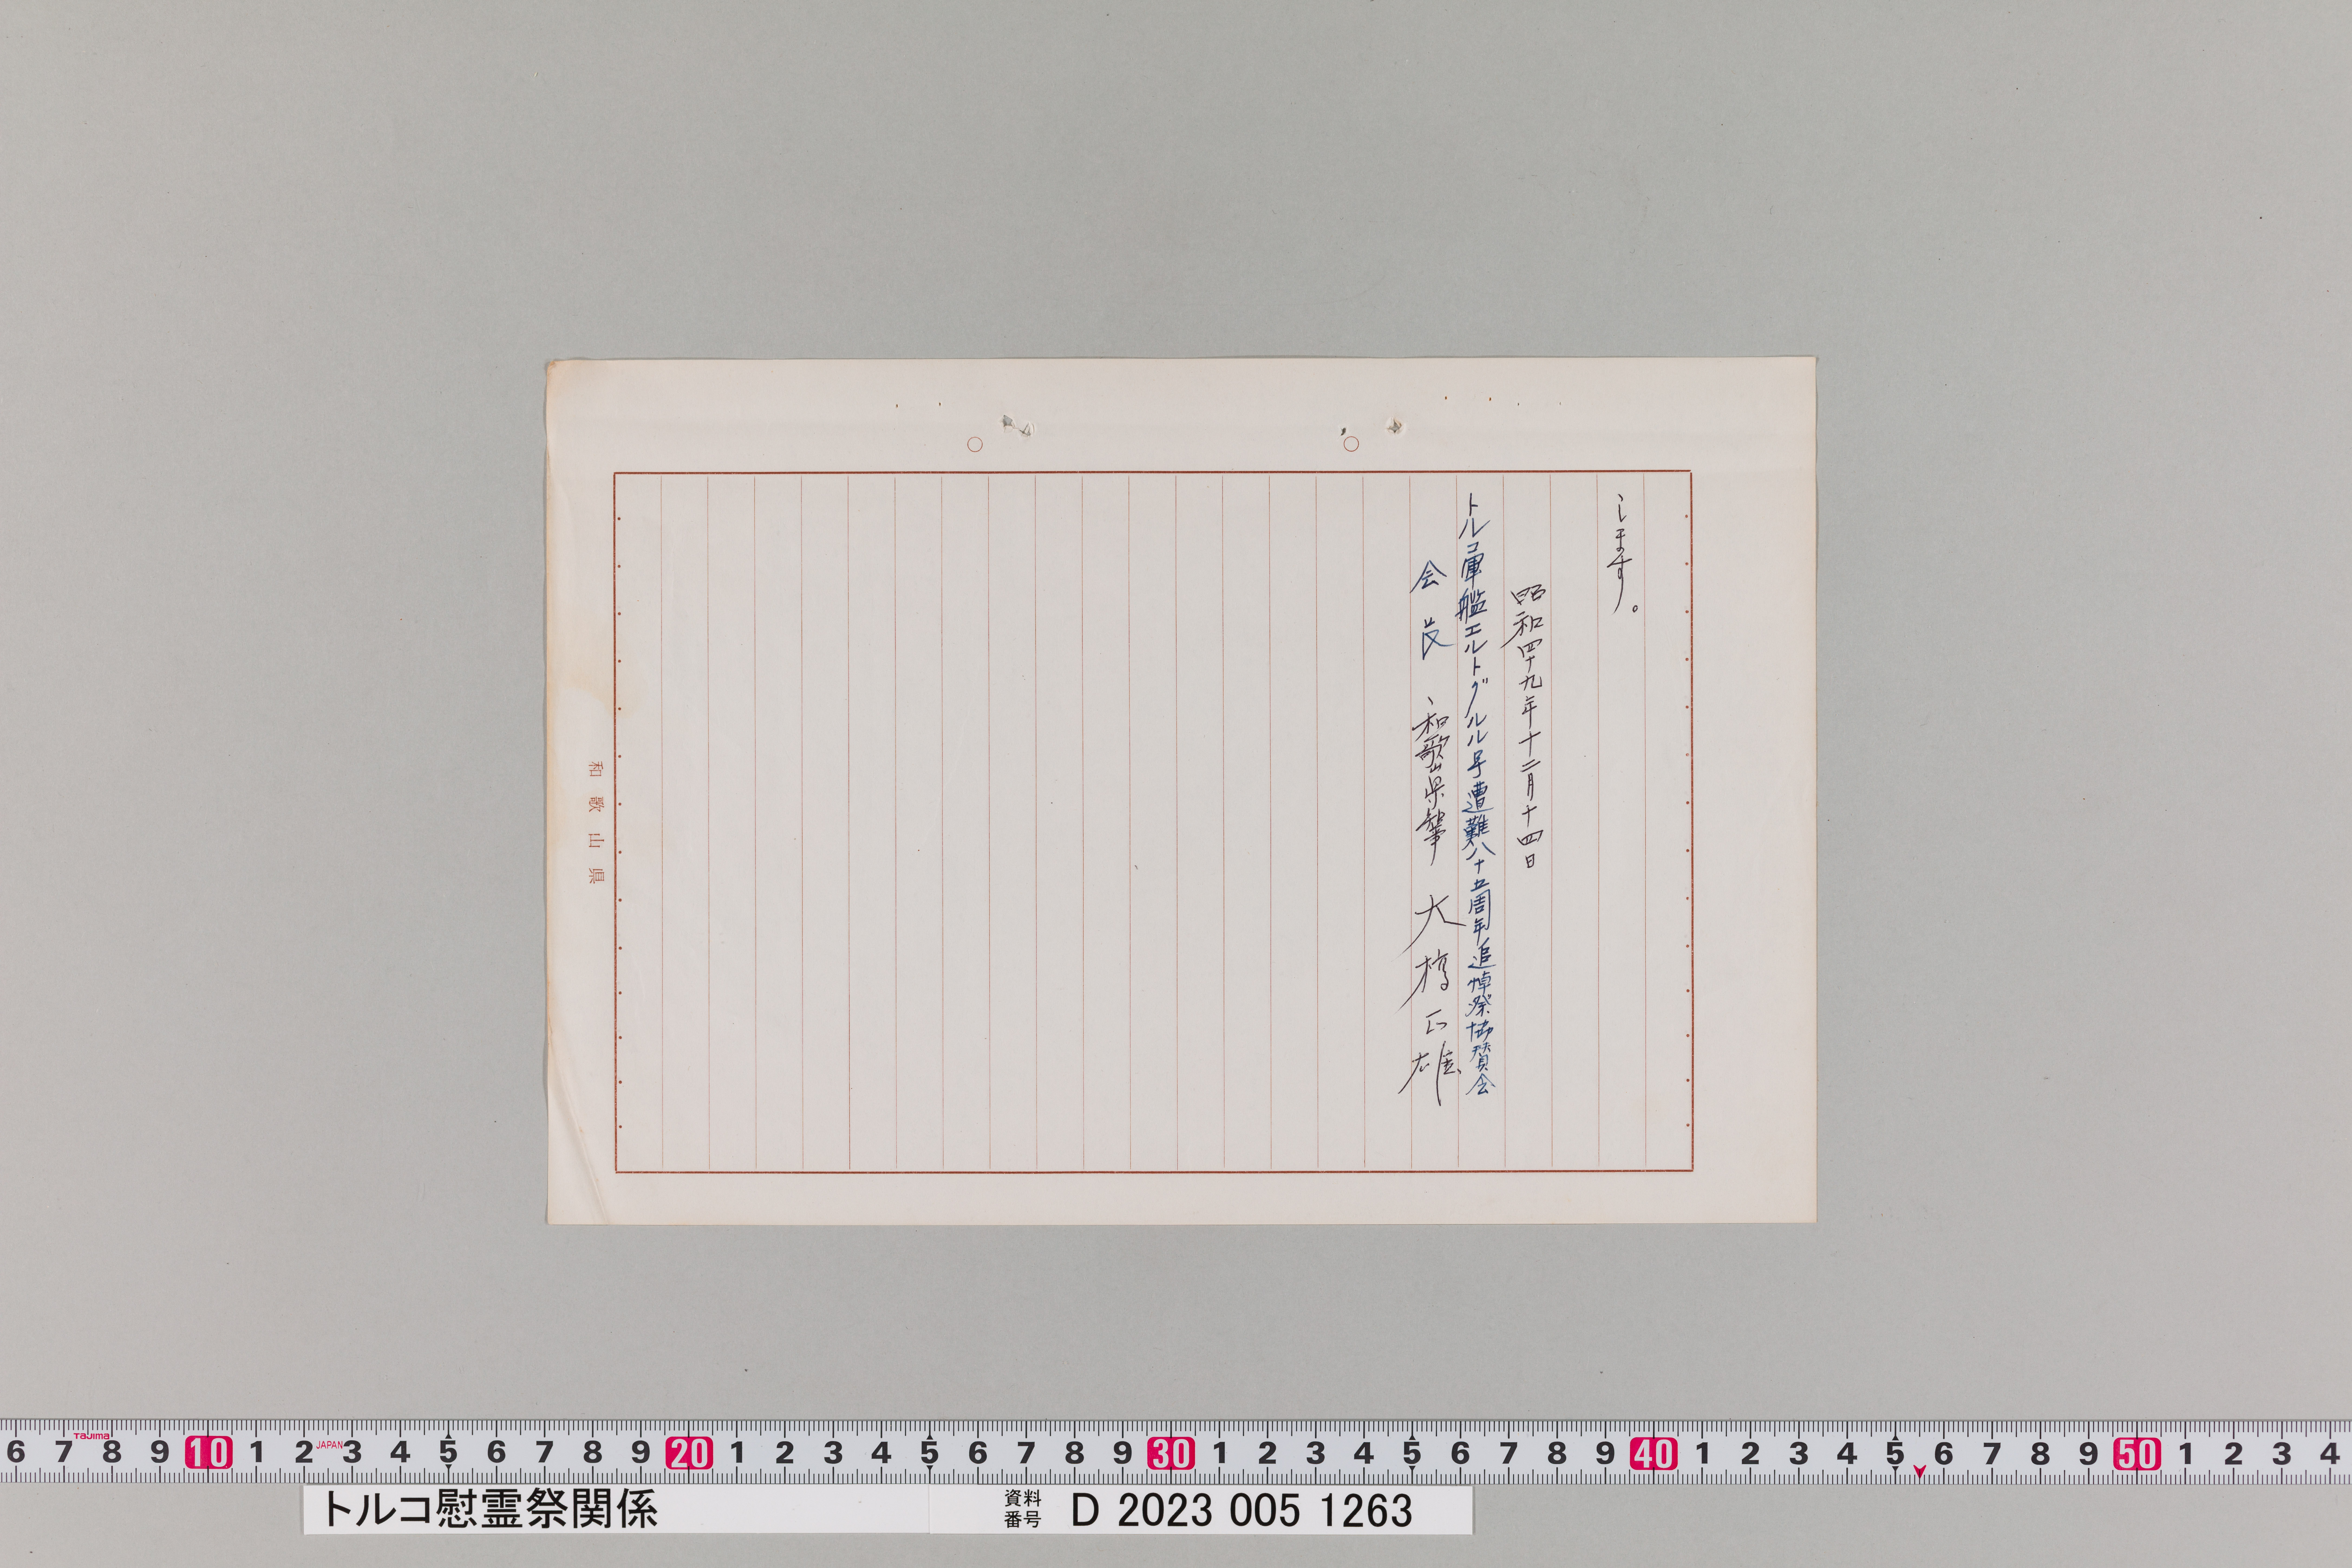 します。
昭和四十九年十二月十四日
トルコ軍艦エルトグルル号遭難八十五周年追悼祭協賛会
会長 和歌山県知事 大橋正雄
和歌山県
6 7 8 9 10 1 2 3 4 5 6 7 8 9 20 1 2 3 4 5 6 7 8 9 30 1 2 3 4 5 6 7 8 9 40 1 2 3 4 5 6 7 8 9 50 1 2 3 4
Tajima
JAPAN
トルコ慰霊祭関係
資料番号 D 2023 005 1263